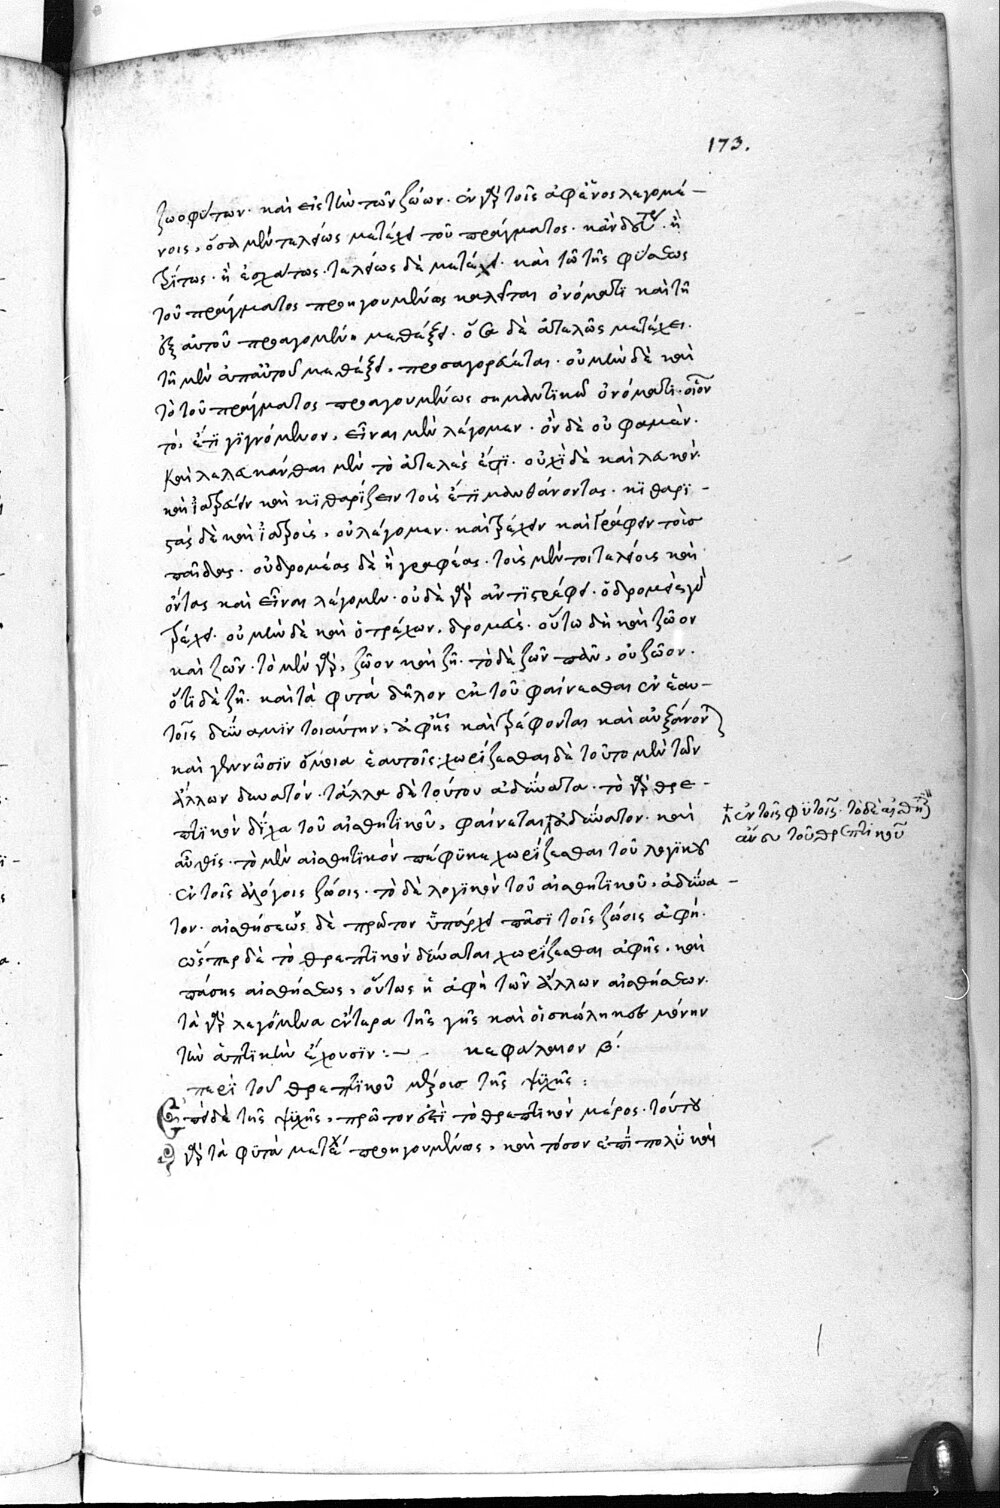 173.
ζωοφύτων. καὶ εἰς τὴν τῶν ζώων. ἐν γὰρ τοῖς ἀφἑνος λεγομέ-
νοις, ὅσα μὲν τελέως μετέχει τοῦ πράγματος. κἂν δευτέρως. ἢ
τρίτως. ἢ ἐσχάτως. τελέως δὲ μετέχει. καὶ τῶ τῆς φύσεως
τοῦ πράγματος προηγουμένως καλεῖται ὀνόματι καὶ τῆ
ἐξ αὐτοῦ προαγομένη μεθέξει. ὅσα δὲ ἀτελῶς μετέχει.
τῆ μὲν ἀπ' αὐτοῦ μεθέξει, προσαγορεύεται. οὐ μὴν δὲ καὶ
τὸ τοῦ πράγματος προαγουμένως σημαντικῶ ὀνόματι. οἷον
τὸ, ἔτι γιγνόμενον, εἶναι μὲν λέγομεν. ὂν δὲ οὐ φαμὲν.
καὶ λελευκάνθαι μὲν τὸ ἀτελὲς ἔτι. οὐχὶ δὲ καὶ λευκόν.
καὶ ἰατρεύειν καὶ κιθαρίζειν τοὺς ἔτι μανθάνοντας. κιθαρι-
στὰς δὲ καὶ ἰατροὺς, οὐ λέγομεν. καὶ τρέχειν καὶ γράφειν τοὺς
παῖδας. οὐ δρομέας δὲ ἢ γραφέας. τοὺς μέντοι τελείους καὶ
ὄντας καὶ εἶναι λέγομεν. οὐδὲ γὰρ ἀντιστρέφει. ὁ δρομεὺς μὲν
τρέχει. οὐ μὴν δὲ καὶ ὁ τρέχων, δρομεὺς. οὕτω δὴ καὶ ζῶον
καὶ ζῶν. τὸ μὲν γὰρ, ζῶον καὶ ζῆ. τὸ δὲ ζῶν πᾶν, οὐ ζῶον.
ὅτι δὲ ζῆ. καὶ τὰ φυτὰ δῆλον ἐκ τοῦ φαίνεσθαι ἐν ἑαυ-
τοῖς δύναμιν τοιαύτην, ἀφ' ἧς καὶ τρέφονται καὶ αὐξάνονται
καὶ γεννῶσιν ὅμοια ἑαυτοῖς χωρίζεσθαι δὲ τοῦτο μὲν τῶν
ἄλλων δυνατόν. τἄλλα δὲ τούτου ἀδύνατα. τὸ γὰρ θρε-
πτικὸν δίχα τοῦ αἰσθητικοῦ, φαίνεται ἀδύνατον. καὶ
+ ἐν τοῖς φυτοῖς. τὸ δὲ αἰσθητικὸν
ἄνευ τοῦ θρεπτικοῦ
αὖθις. τὸ μὲν αἰσθητικὸν πέφυκε χωρίζεσθαι τοῦ λογικοῦ
ἐν τοῖς ἀλόγοις ζώοις. τὸ δὲ λογικὸν τοῦ αἰσθητικοῦ, ἀδύνα-
τον. αἰσθήσεως δὲ πρῶτον ὑπάρχει πᾶσι τοῖς ζώοις ἁφή.
ὥσπερ δὲ τὸ θρεπτικὸν δύναται χωρίζεσθαι ἁφῆς. καὶ
πάσης αἰσθήσεως, οὕτως ἡ ἁφὴ τῶν ἄλλων αἰσθήσεων.
τὰ γὰρ λεγόμενα ἔντερα τῆς γῆς καὶ οἱ σκώληκες μόνην
τὴν ἁπτικὴν ἔχουσιν:~ κεφάλαιον β'.
περὶ τοῦ θρεπτικοῦ μέρους τῆς ψυχῆς:
Ἐπεὶ δὲ τῆς ψυχῆς, πρῶτον ἐστὶ τὸ θρεπτικὸν μέρος. τούτου
γὰρ τὰ φυτὰ μετέχει προηγουμένως, καὶ τόσον ἐπὶ πολὺ καὶ